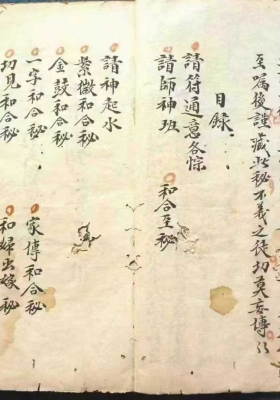 至嘱後謹藏此秘不義之徒切莫妄傳
目錄
請符通意各悰
請師神班
和合至秘
請神起水
紫微和合秘
金鼓和合秘
一字和合秘
家傳和合秘
切見和合秘
和婦出嫁秘